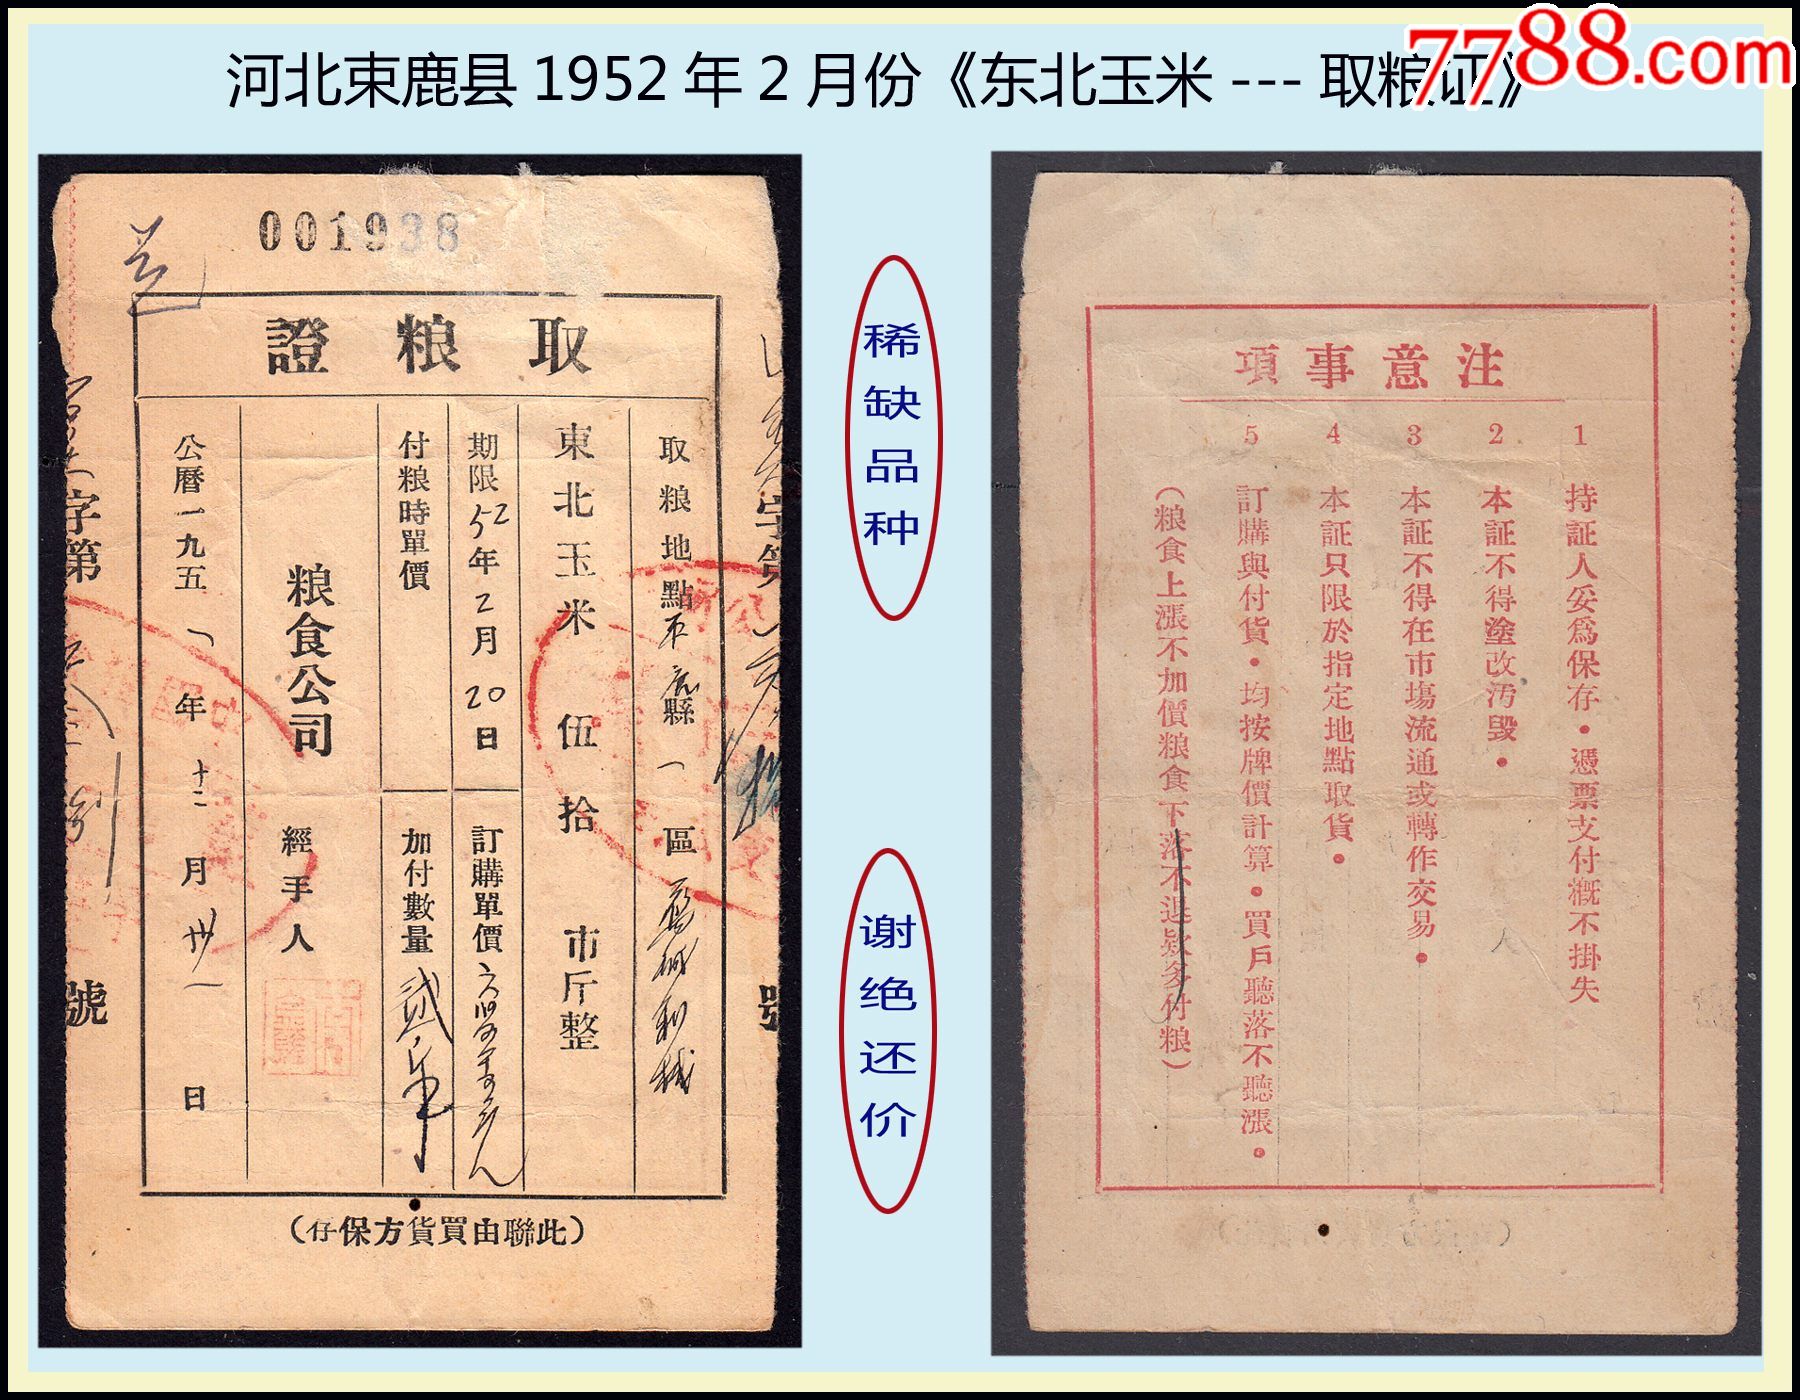 河北束鹿县1952年2月份《东北玉米---取粮证》
7788.com
001938
取粮證
取粮地點 縣一區
東北玉米伍拾市斤整
期限52年2月20日
訂購單價
付粮時單價
加付數量
粮食公司
經手人
公曆一九五一年十二月卅一日
字第
號
字第
號
(此聯由買貨方保存)
稀缺品种
谢绝还价
注意事項
1 持証人妥爲保存·憑票支付概不掛失
2 本証不得塗改汚毀·
3 本証不得在市塲流通或轉作交易·
4 本証只限於指定地點取貨·
5 訂購與付貨·均按牌價計算·買戶聽落不聽漲·
(粮食上漲不加價粮食下落不退欵多付粮)